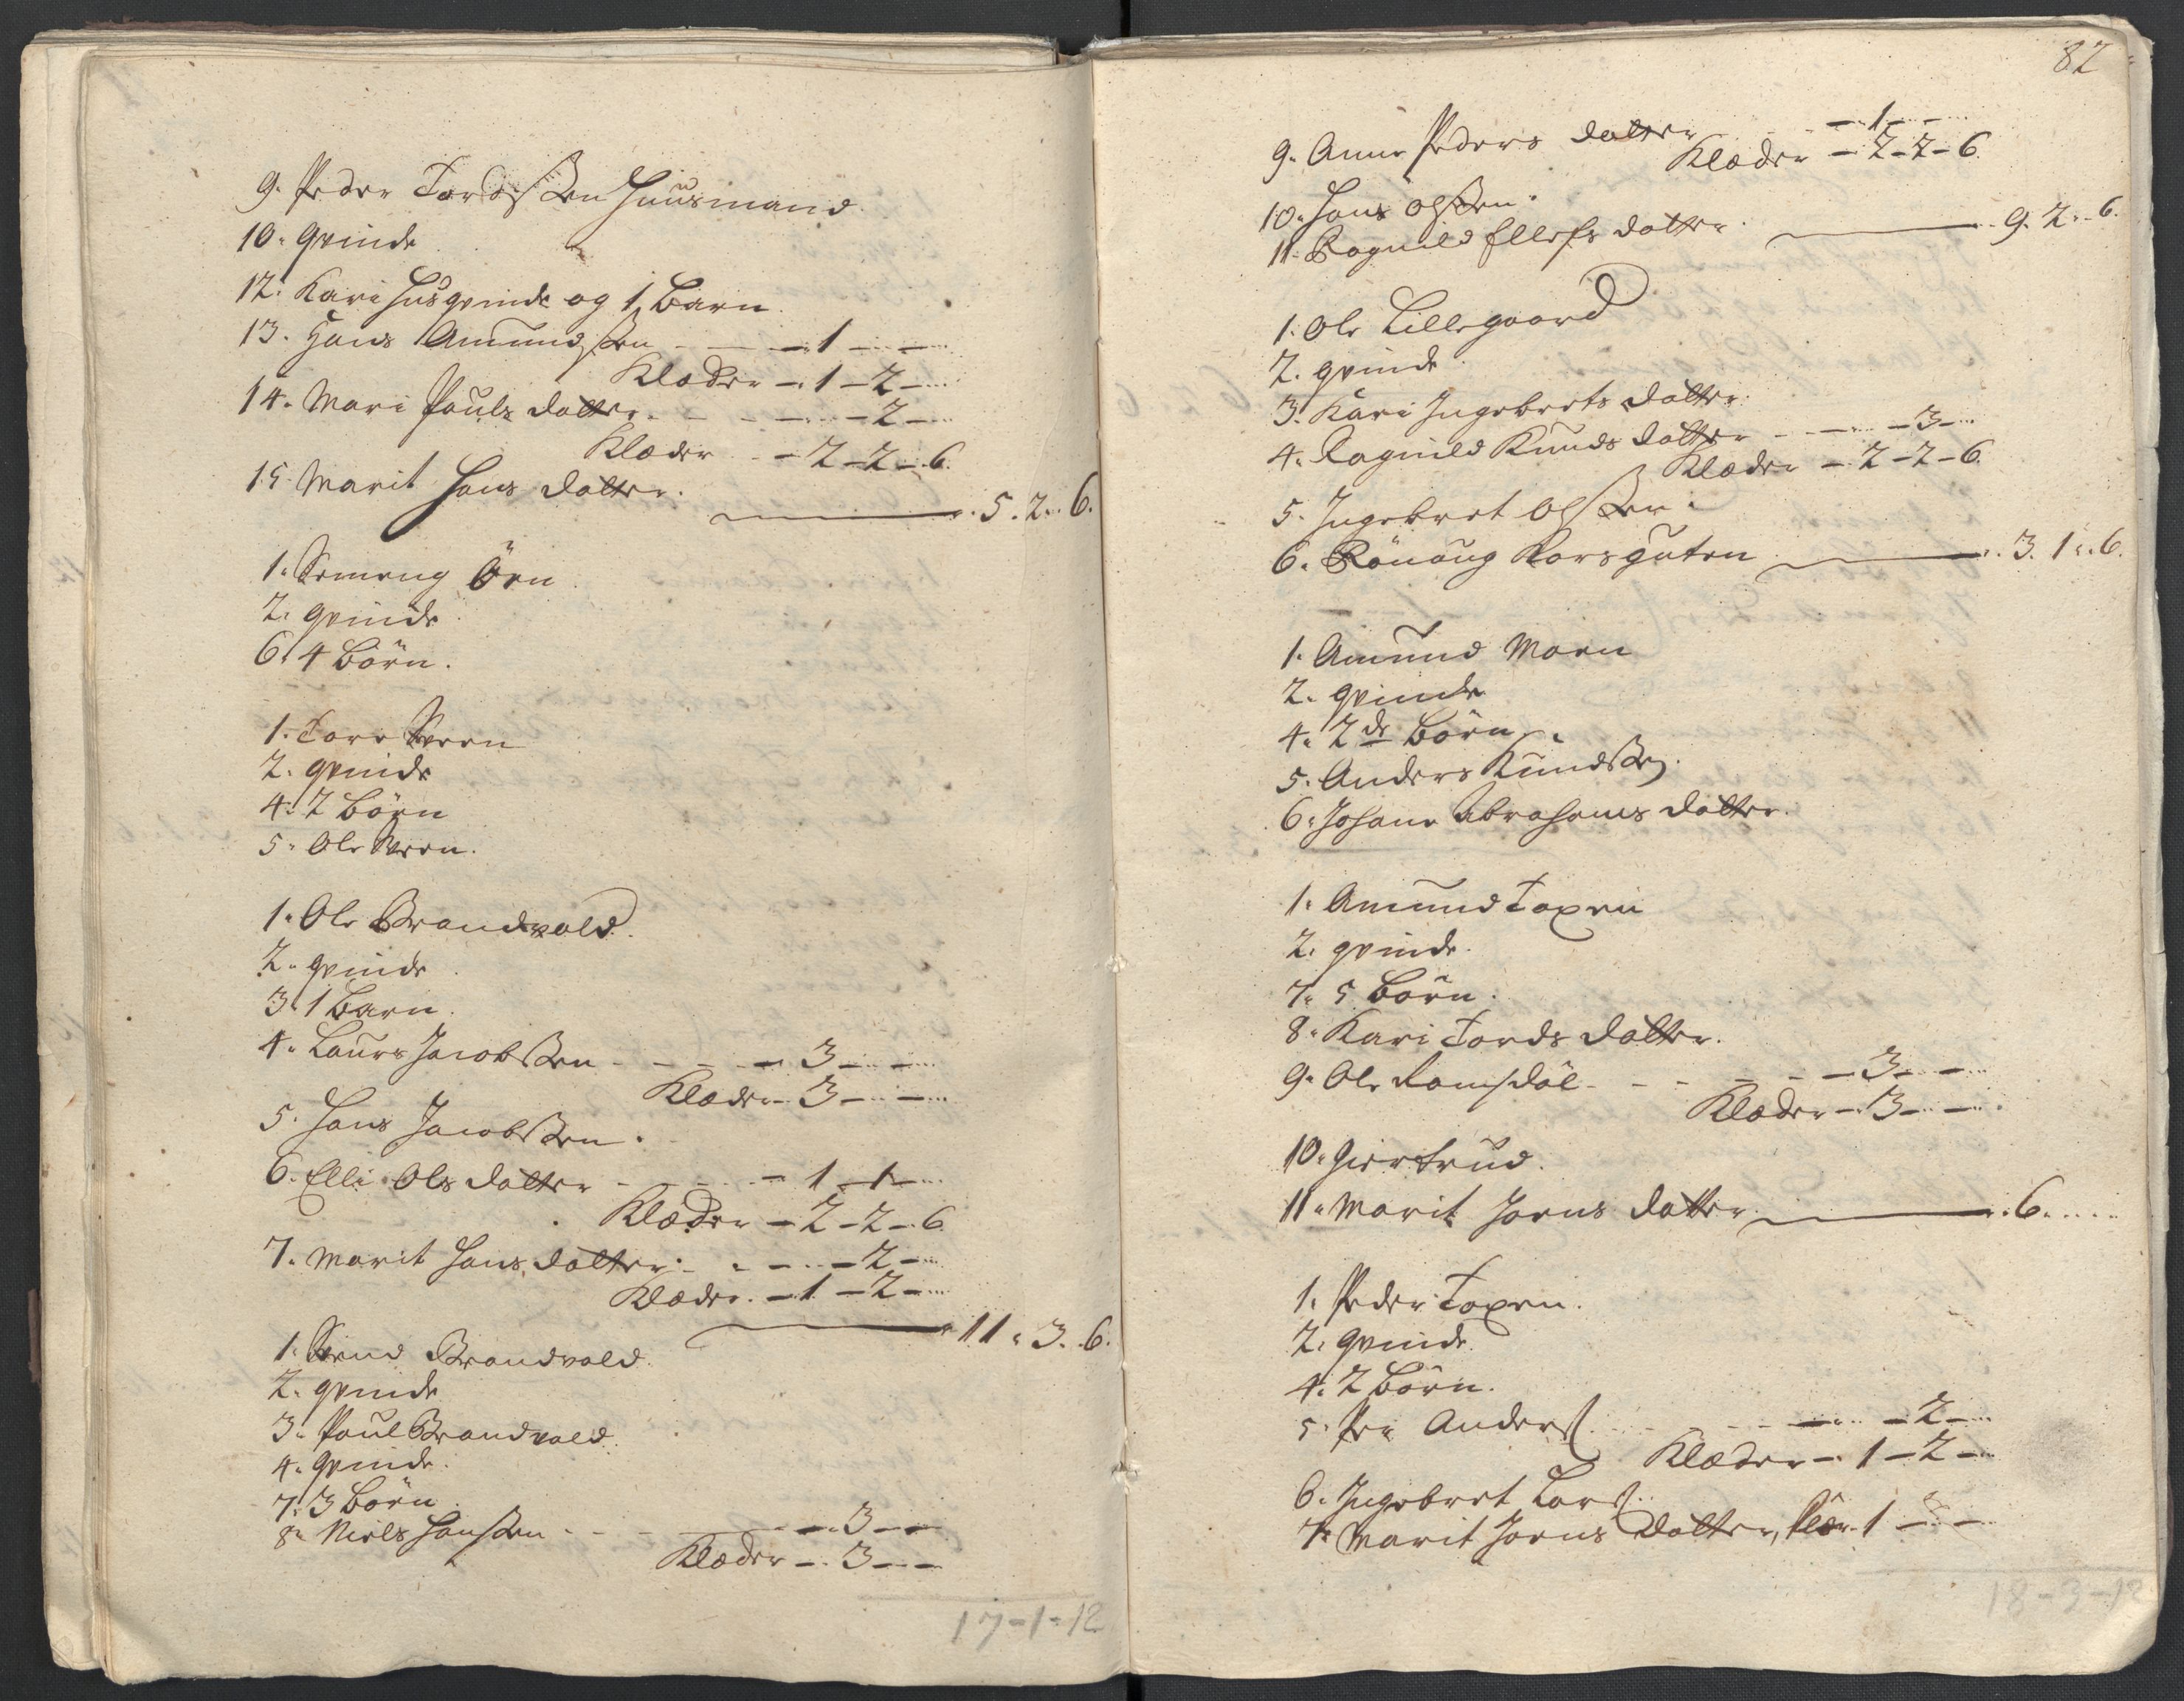 9. Peder Tordsßen Huusmand
10. qvinde
12. Kari Husqvinde og 1 Barn
13. Hans Amundsßen - - - 1 - -
Klæder - 1 - 2 -
14. Mari Pouls dotter - - - - 2 -
Klæder - 2 - 2 - 6.
15. Marit Hans dotter.
5. 2. 6.
1. Semeng Örn
2. qvinde
6. 4 Börn.
1. Tore Veen
2. qvinde
4. 2 Börn
5. Ole Veen.
1. Ole Brandvold.
2. qvinde
3. 1 Barn.
4. Laurs Jacobsßen - - - - 3 - -
Klæder - 3 - -
5. Hans Jacobsßen.
6. Elli Ols dotter - - - 1 - 1 -
Klæder - 2 - 2 - 6
7. Marit Hans dotter - - - - 2 -
Klæder - 1 - 2 -
11. 3. 6.
1. Svend Brandvold.
2. qvinde
3. Poul Brandvold.
4. qvinde.
7. 3 Börn.
8. Niels Hansßen - - - 3 - -
Klæder - 3 - -
17-1-12
82
9. Anne Peders dotter - 1 - -
Klæder - 2 - 2 - 6.
10. Hans Olsßen.
11. Ragnild Ellefs dotter. 9. 2. 6.
1. Ole Lillegaard
2. qvinde
3. Kari Ingebrets dotter.
4. Ragnild Knuds dotter - - - 3 -
Klæder - 2 - 2 - 6.
5. Ingebret Olsßen.
6. Rönoug Korsguten 3. 1. 6.
1. Amund Moen
2. qvinde
4. 2de Börn.
5. Anders Knudsßen.
6. Johane Abrahams dotter.
1. Amund Toxen
2. qvinde.
7. 5 Börn.
8. Kari Tords dotter.
9. Ole Romsdöl - - - - 3 - -
Klæder - 3 - -
10. Giertrud.
11. Marit Joens dotter 6.
1. Peder Toxen.
2. qvinde.
4. 2 Börn.
5. Per Anders. - - - - 2 -
Klæder - 1 - 2 -
6. Ingebret Lars.
7. Marit Joens Dotter, Klær 1 - -
18-3-12